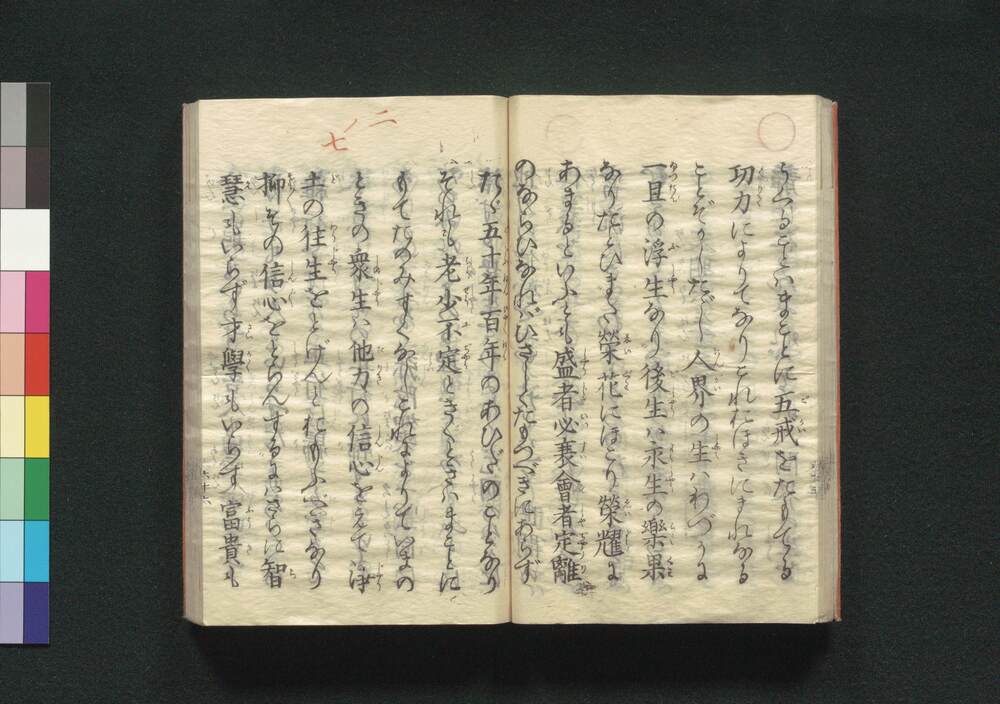 うくることはまことに五戒をたもてる
功力によりてなりこれおほきにまれなる
ことぞかしたゞし人界の生ハわづかに
一旦の浮生なり後生ハ永生の樂果
なりたとひまた榮花にほこり榮耀に
あまるといふとも盛者必衰會者定離
のならひなれバひさしくたもつべきにあらず
二ノ七
たゞ五十年百年のあひだのことなり
それも老少不定ときくときハまことに
もてたのみすくなしこれによりていまの
ときの衆生ハ他力の信心をえて浄
土の往生をとげんとおもふべきなり
抑その信心をとらんずるにハさらに智
慧もいらず才學もいらず富貴も
六十六